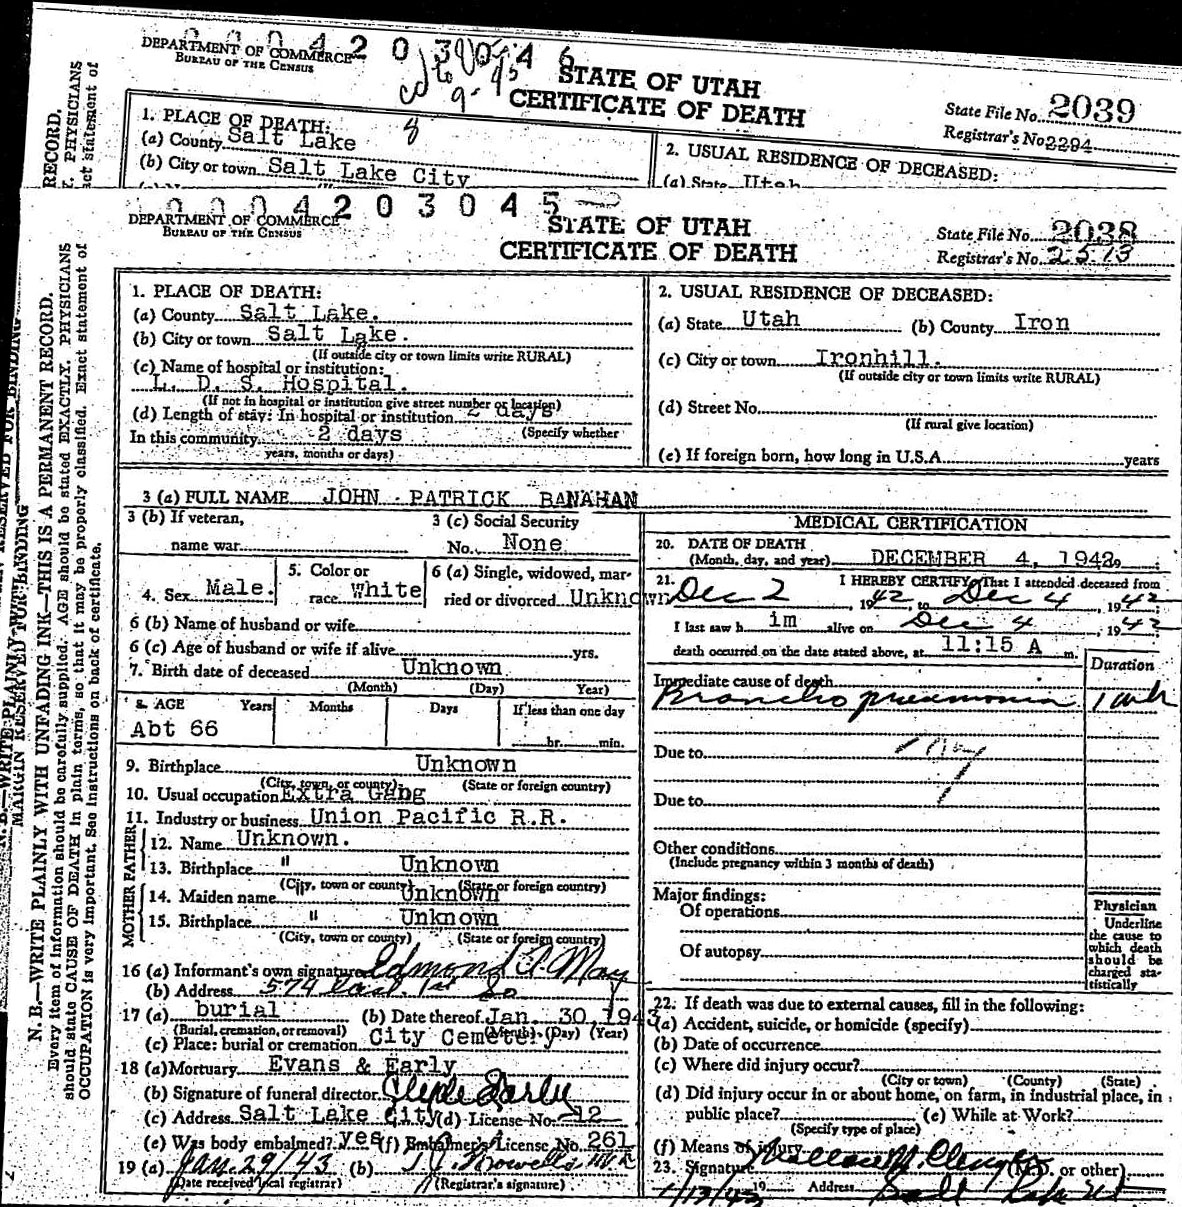 0 0 0 4 2 0 3 0 4 6
DEPARTMENT OF COMMERCE
BUREAU OF THE CENSUS
STATE OF UTAH
CERTIFICATE OF DEATH
State File No. 2039
Registrar's No. 2294
1. PLACE OF DEATH: 8
(a) County Salt Lake
(b) City or town Salt Lake City
2. USUAL RESIDENCE OF DECEASED:
(a) State Utah
0 0 0 4 2 0 3 0 4 5
DEPARTMENT OF COMMERCE
BUREAU OF THE CENSUS
STATE OF UTAH
CERTIFICATE OF DEATH
State File No. 2038
Registrar's No. 2513
1. PLACE OF DEATH:
(a) County Salt Lake.
(b) City or town Salt Lake.
(If outside city or town limits write RURAL)
(c) Name of hospital or institution:
L. D. S. Hospital.
(If not in hospital or institution give street number or location)
(d) Length of stay: In hospital or institution 2 days
In this community 2 days (Specify whether
years, months or days)
2. USUAL RESIDENCE OF DECEASED:
(a) State Utah (b) County Iron
(c) City or town Ironhill.
(If outside city or town limits write RURAL)
(d) Street No.
(If rural give location)
(e) If foreign born, how long in U.S.A. years
3 (a) FULL NAME JOHN PATRICK BANAHAN
3 (b) If veteran,
name war
3 (c) Social Security
No. None
4. Sex Male.
5. Color or
race White
6 (a) Single, widowed, mar-
ried or divorced Unknown
6 (b) Name of husband or wife
6 (c) Age of husband or wife if alive yrs.
7. Birth date of deceased Unknown
(Month) (Day) Year)
8. AGE Years Months Days If less than one day
Abt 66 hr. min.
9. Birthplace Unknown
(City, town, or county) (State or foreign country)
10. Usual occupation Extra Gang
11. Industry or business Union Pacific R.R.
FATHER
12. Name Unknown.
13. Birthplace " Unknown
(City, town or county) (State or foreign country)
MOTHER
14. Maiden name " Unknown
15. Birthplace " Unknown
(City, town or county) (State or foreign country)
16 (a) Informant's own signature Edmond
(b) Address 574 East 1st So
17 (a) burial (b) Date thereof Jan. 30 1943
(Burial, cremation, or removal) (Month) (Day) (Year)
(c) Place: burial or cremation City Cemetery
18 (a) Mortuary Evans & Early
(b) Signature of funeral director Clyde Early
(c) Address Salt Lake City (d) License No. 12
(e) Was body embalmed? yes (f) Embalmer's License No. 261
19 (a) Jan. 29/43 (b)
(Date received local registrar) (Registrar's signature)
MEDICAL CERTIFICATION
20. DATE OF DEATH
(Month, day, and year) DECEMBER 4, 1942.
21. I HEREBY CERTIFY, That I attended deceased from
Dec 2, 1942 to Dec 4, 1942;
I last saw h im alive on Dec 4, 1942
death occurred on the date stated above, at 11:15 A m.
Duration
Immediate cause of death
Broncho pneumonia 1 wk
Due to
Due to
Other conditions
(Include pregnancy within 3 months of death)
Major findings:
Of operations
Of autopsy
Physician
Underline
the cause to
which death
should be
charged sta-
tistically
22. If death was due to external causes, fill in the following:
(a) Accident, suicide, or homicide (specify)
(b) Date of occurrence
(c) Where did injury occur?
(City or town) (County) (State)
(d) Did injury occur in or about home, on farm, in industrial place, in
public place? (e) While at Work?
(Specify type of place)
(f) Means of injury
23. Signature (M.D. or other)
1/13/43 19 Address Salt Lake Ut
N. B.—WRITE PLAINLY WITH UNFADING INK—THIS IS A PERMANENT RECORD.
Every item of information should be carefully supplied. AGE should be stated EXACTLY. PHYSICIANS
should state CAUSE OF DEATH in plain terms, so that it may be properly classified. Exact statement of
OCCUPATION is very important. See instructions on back of certificate.
MARGIN RESERVED FOR BINDING